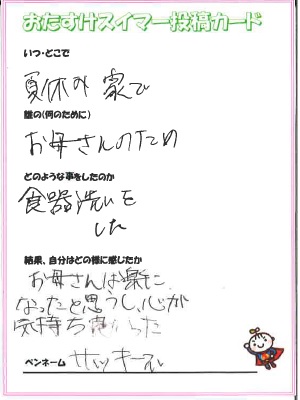 おたすけスイマー投稿カード
いつ・どこで
夏休み 家で
誰の(何のために)
お母さんのため
どのような事をしたのか
食器洗いを
した
結果、自分はどの様に感じたか
お母さんは楽に
なったと思うし、心が
気持ち良かった
ペンネーム